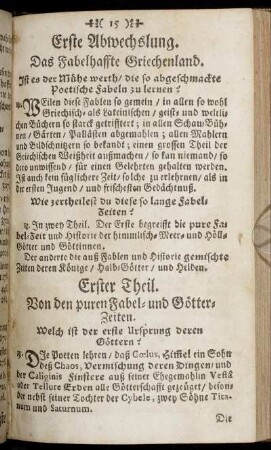 15
Erste Abwechslung.
Das Fabelhaffte Griechenland.
Ist es der Mühe werth / die so abgeschmackte
Poetische Fabeln zu lernen?
Weilen diese Fablen so gemein / in allen so wohl
Griechisch- als Lateinischen / geist- und weltli-
chen Büchern so starck getrifftert; in allen Schau-Büh-
nen / Gärten / Pallästen abgemahlen; allen Mahlern
und Bildschnitzern so bekandt; einen grossen Theil der
Griechischen Weißheit außmachen / so kan niemand / so
dero unwissend / für einen Gelehrten gehalten werden.
Ist auch kein füglicher Zeit / solche zu erlehrnen / als in
der ersten Jugend / und frischesten Gedächtnuß.
Wie zertheilest du diese so lange Fabel-
Zeiten?
In zwey Theil. Der Erste begreifft die pure Fa-
bel-Zeit und Historie der himmlisch- Meer- und Höll-
Götter und Göttinnen.
Der anderte die auß Fablen und Historie gemischte
Zeiten deren Könige / Halb-Götter / und Helden.
Erster Theil.
Von den puren Fabel- und Götter-
Zeiten.
Welch ist der erste Ursprung deren
Göttern?
Die Poeten lehren / daß Cœlus, Himmel ein Sohn
deß Chaos, Vermischung deren Dingen / und
der Caliginis Finstere auß seiner Ehegemahlin Vesta
oder Tellure Erden alle Götterschafft gezeuget / beson-
der nebst seiner Tochter der Cybele, zwey Söhne Tita-
num und Saturnum.
Die